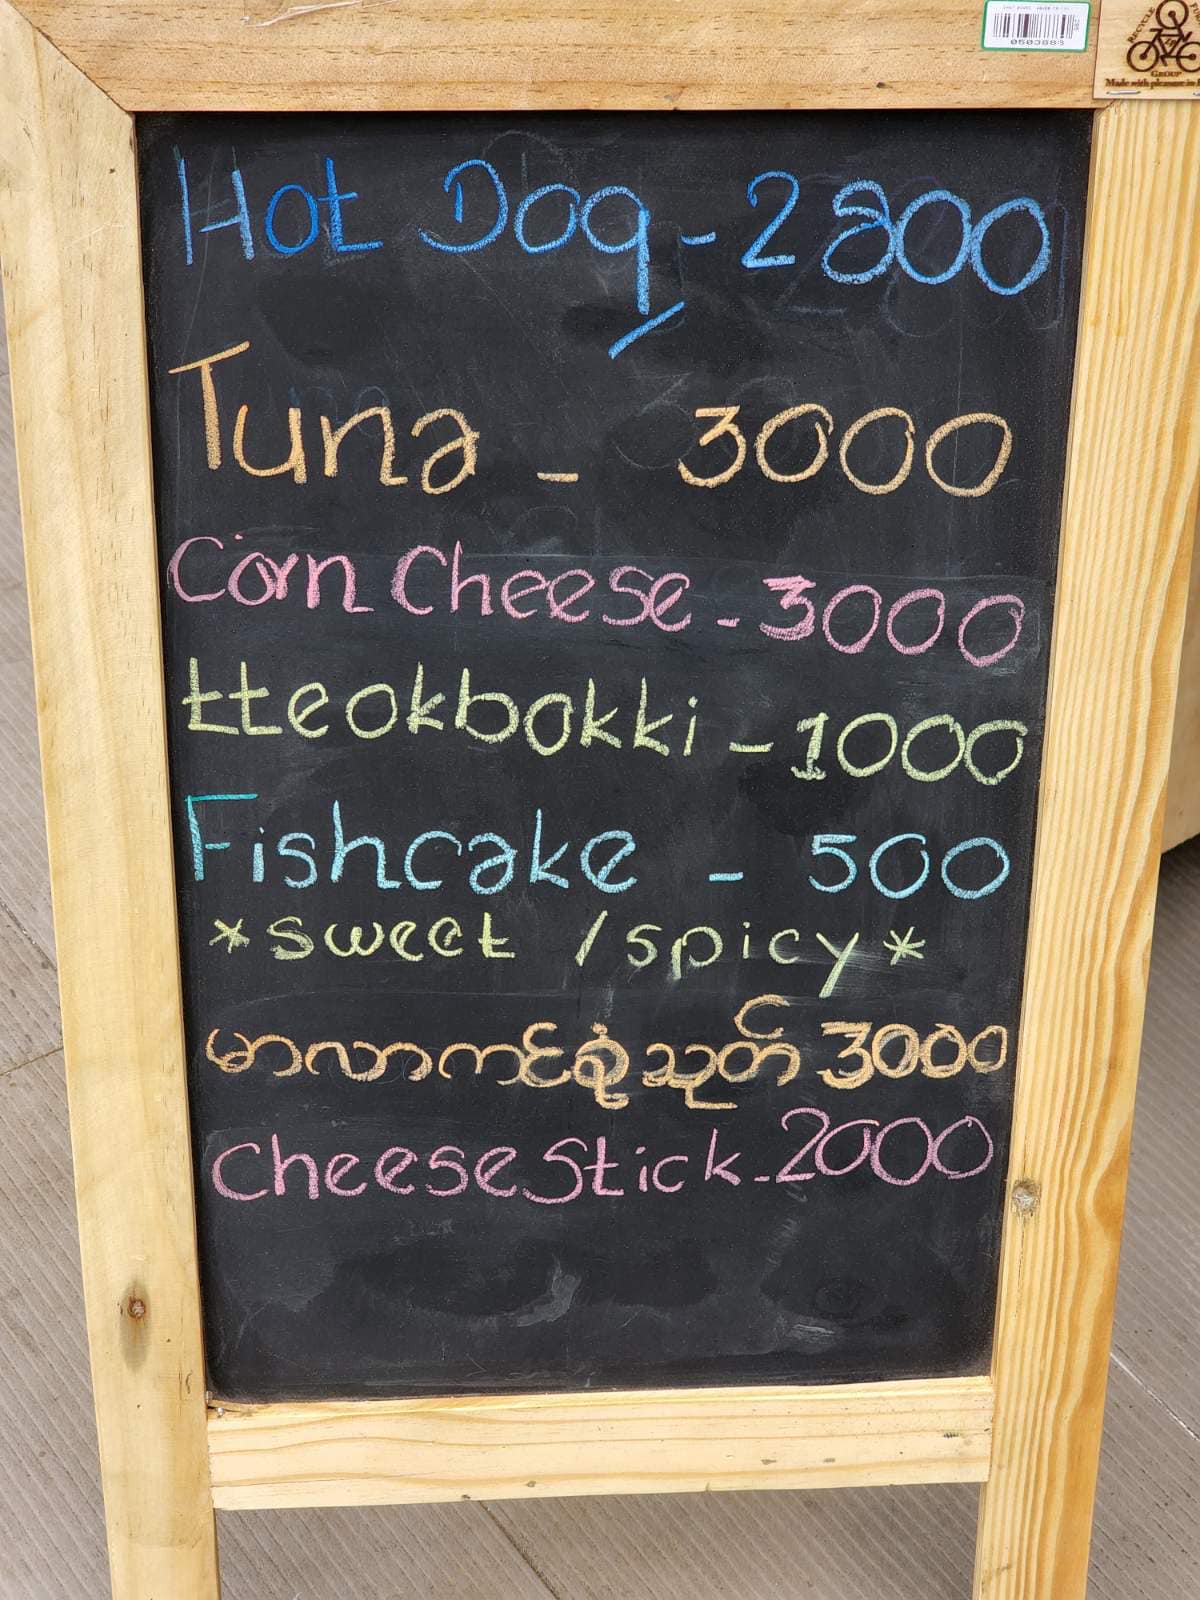 0503889
RECYCLE
GROUP
Made with pleasure in
Hot Dog - 2800
Tuna - 3000
Corn Cheese - 3000
tteokbokki - 1000
Fishcake - 500
*sweet / spicy*
မာလာကင်ရှုံသုတ် 3000
Cheese Stick - 2000